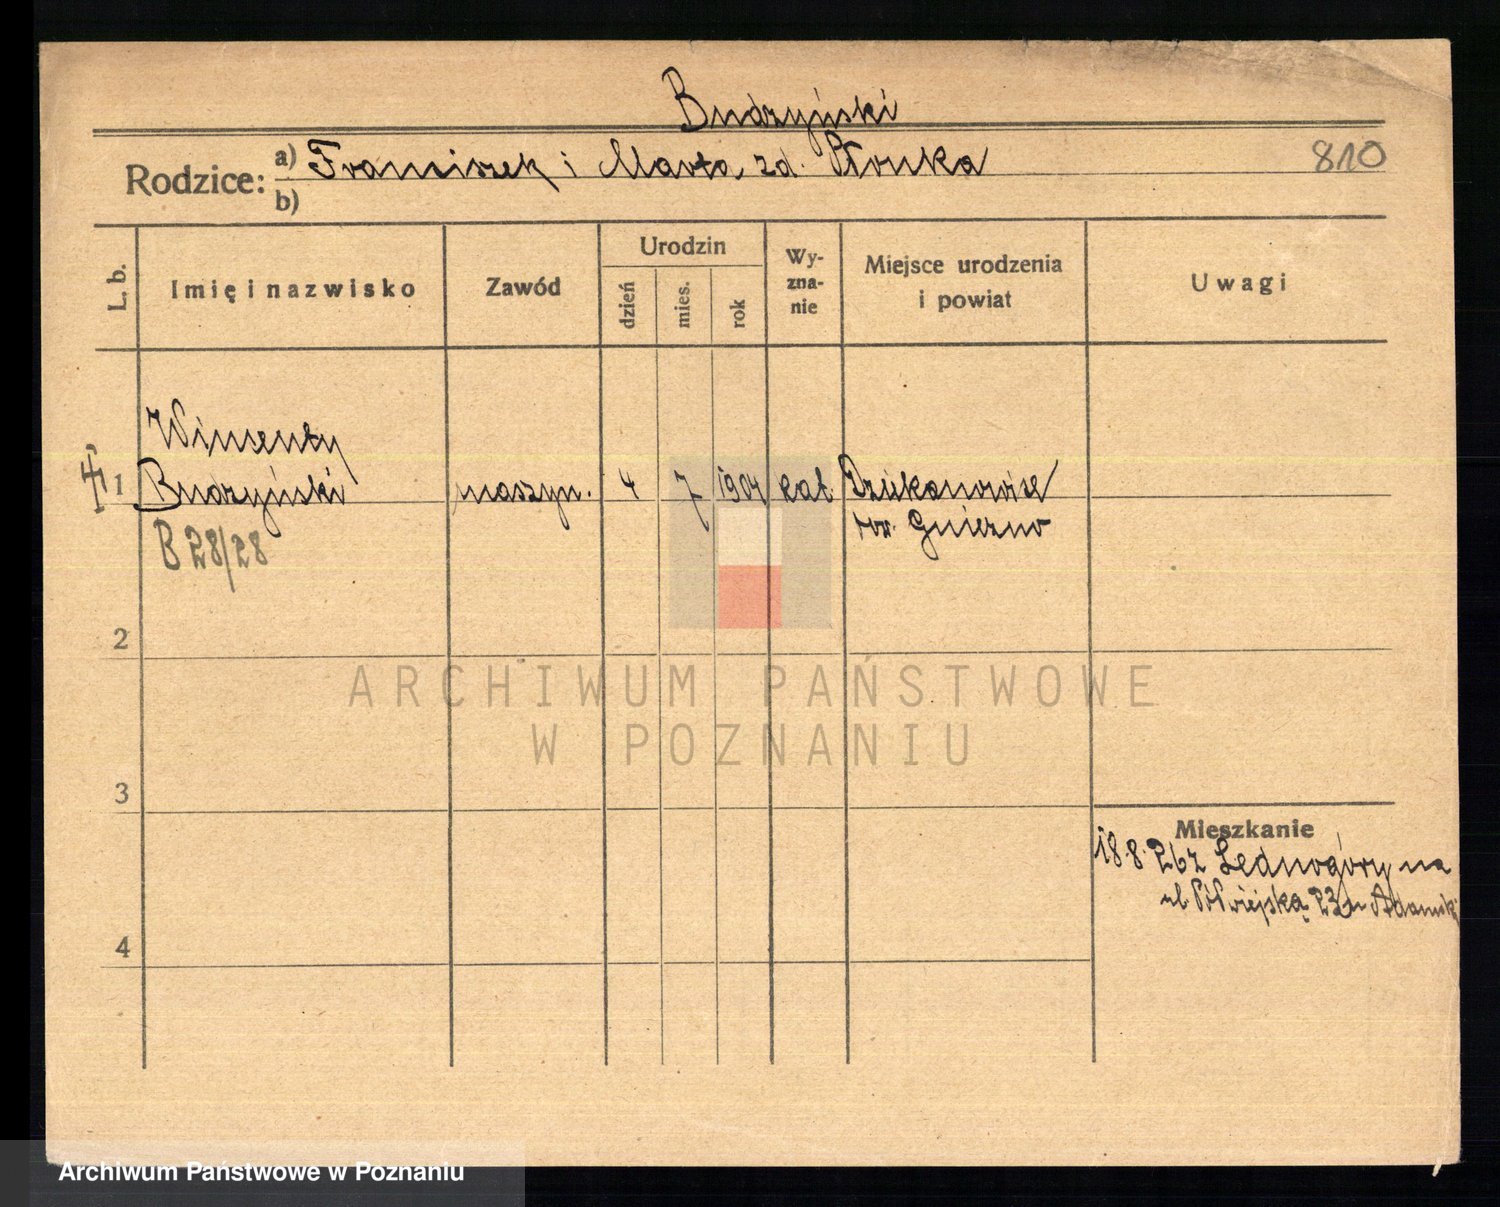 Budzyński
Rodzice: a) Franciszek i Marta zd. Płonka
b)
810
L. b.
Imię i nazwisko
Zawód
Urodzin
dzień
mies.
rok
Wy-
zna-
nie
Miejsce urodzenia
i powiat
Uwagi
Wincenty
1 Budzyński maszyn. 4 7 1904 kat Dziekanowice
pow. Gniezno
B 28/28
2
ARCHIWUM PAŃSTWOWE
W POZNANIU
3
Mieszkanie
18.8.26 z Lednogóry na
ul. Półwiejską 23 u Adamski
4
Archiwum Państwowe w Poznaniu